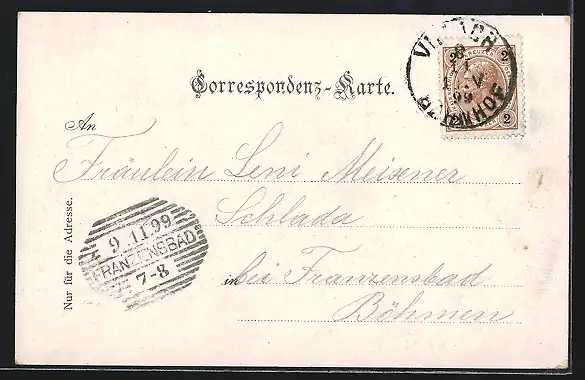 Correspondenz-Karte.
An
Fräulein Leni Meisener
Schlada
in bei Franzensbad
Böhmen
Nur für die Adresse.
9.11.99
FRANZENSBAD
7-8
VILLACH
BAHNHOF
2
2
2